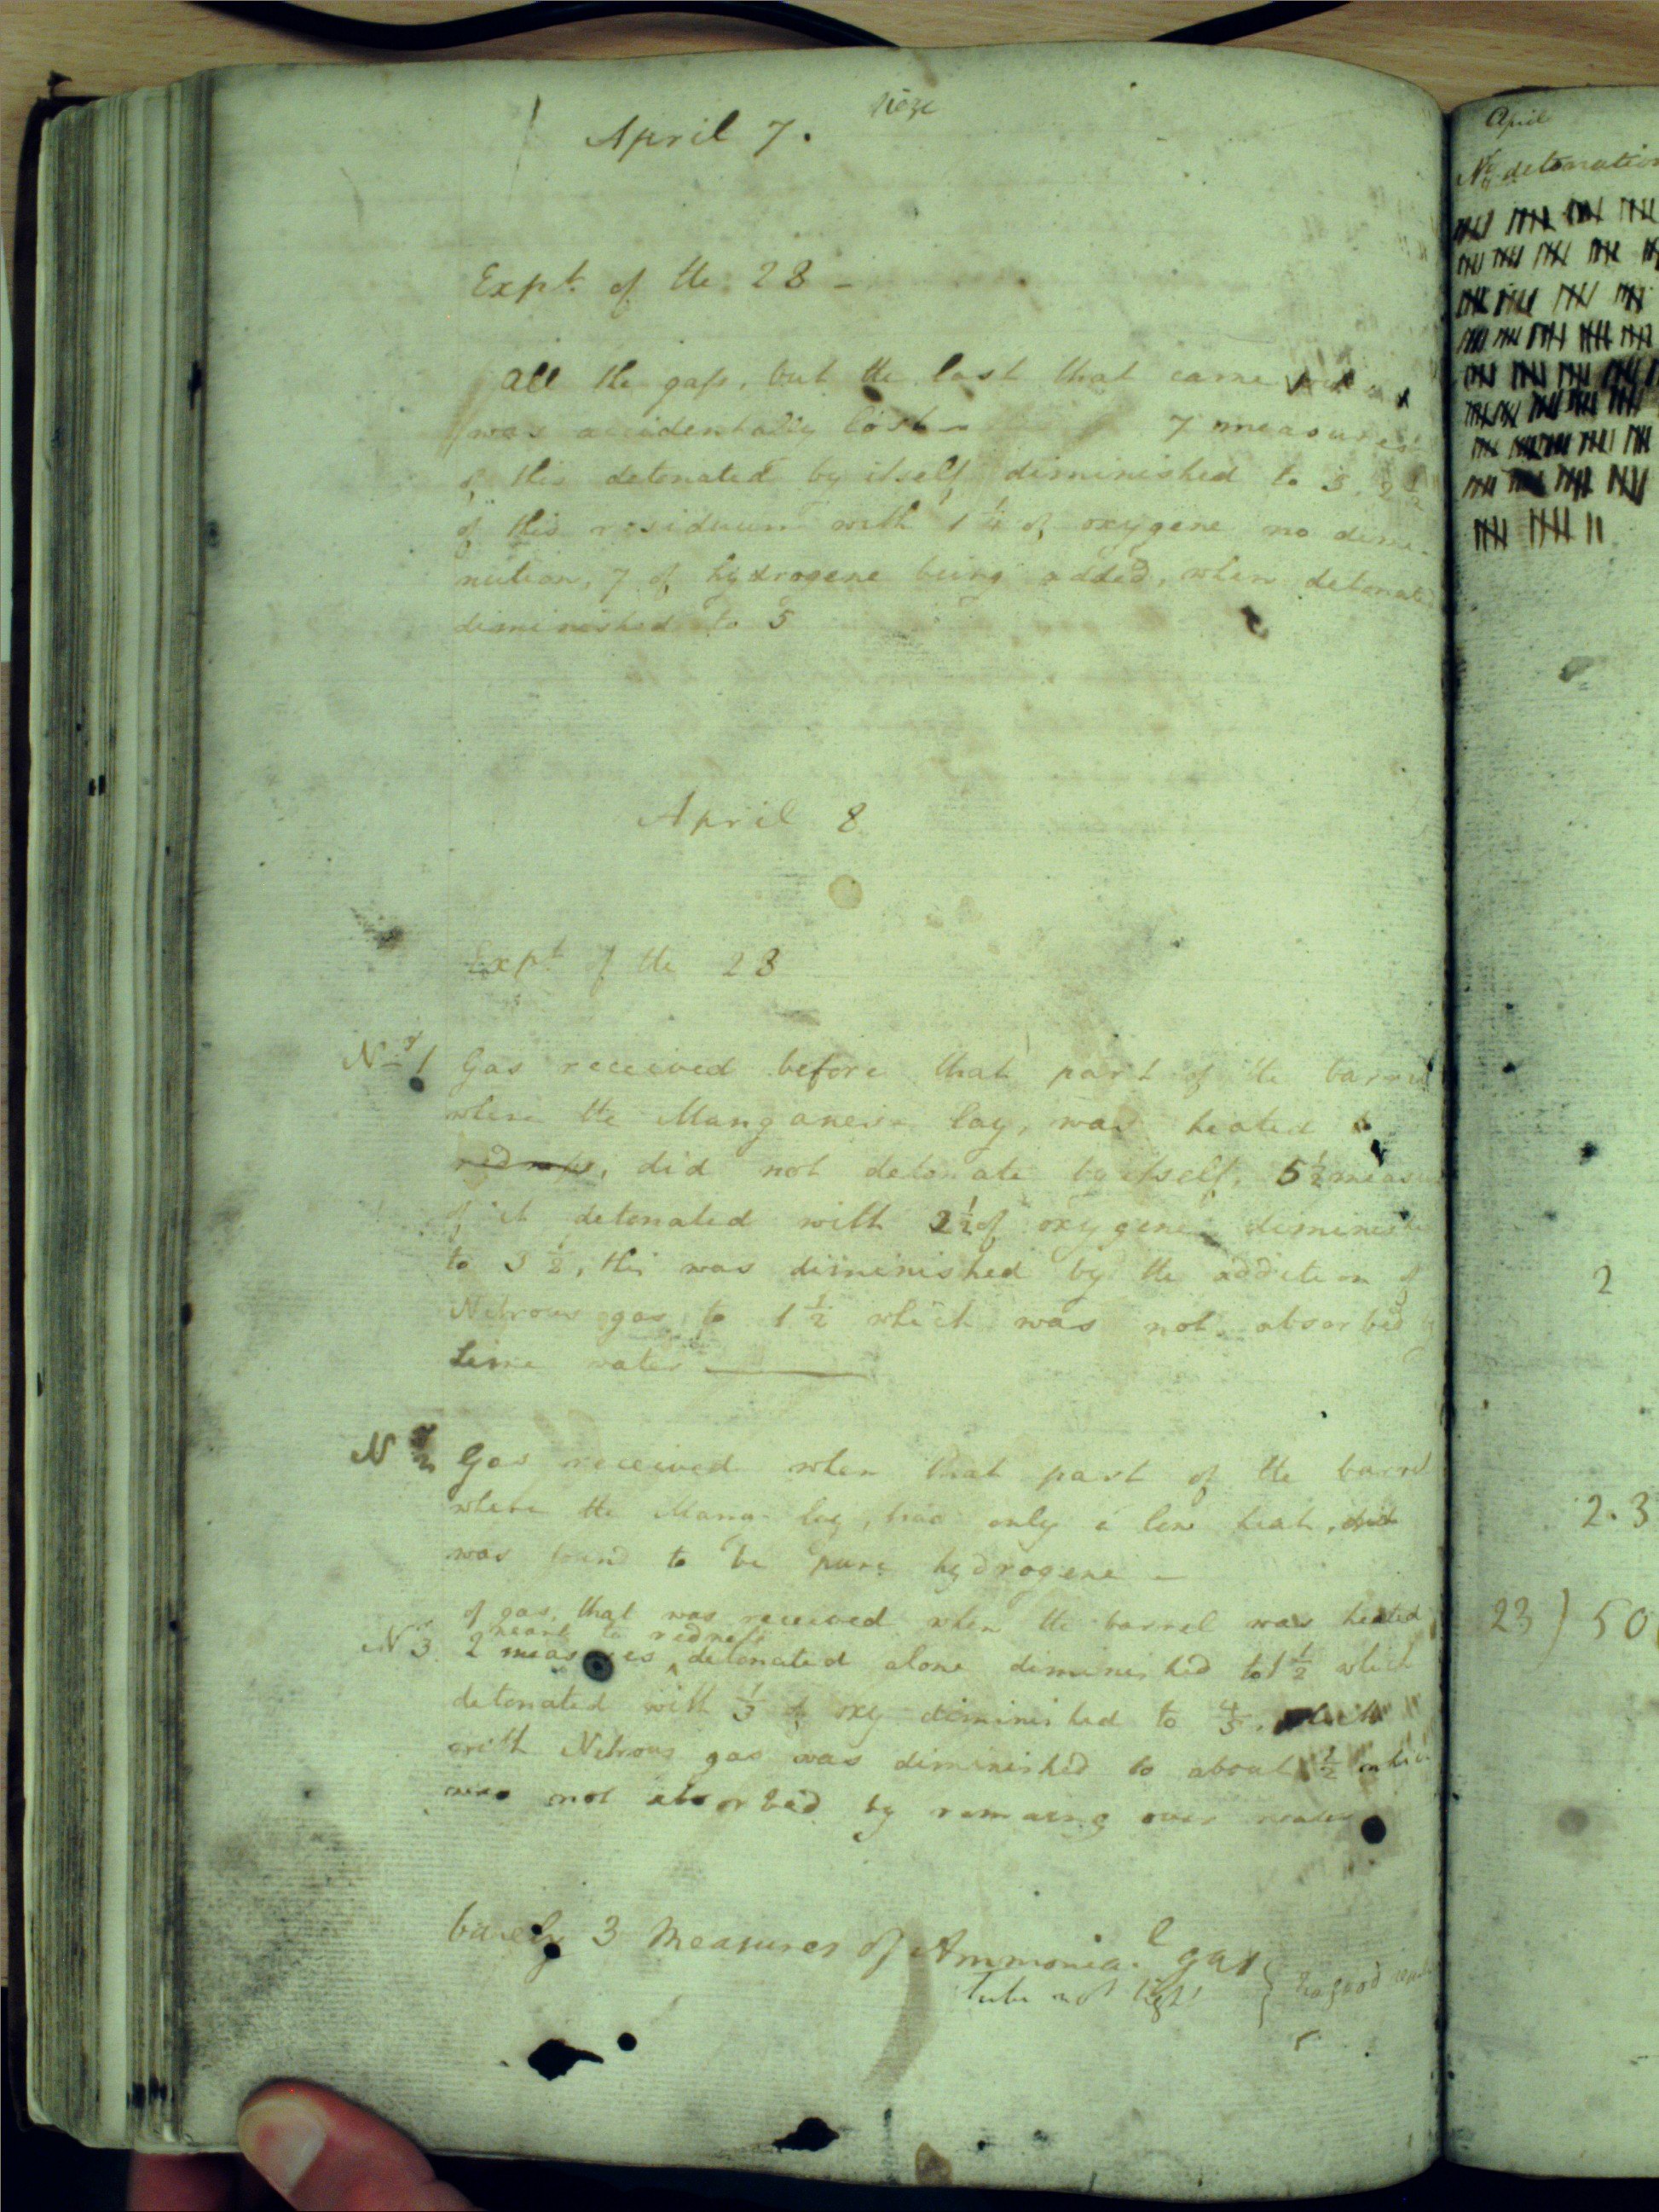 April 7.
Expt. of the 28 -
All the gass, but the last that came
was accidentally lost - 7 measures
of this detonated by itself diminished to 3. 2 1/2
of this residuum with 1 1/4 of oxygene no dimi-
nution, 7 of hydrogene being added, when detonated
diminished to 5
April 8
Expt of the 23
No 1 Gas received before that part of the barrel
where the Manganese lay, was heated
did not detonate by itself, 5 1/2 measures
of it detonated with 2 1/2 of oxygene diminished
to 3 1/2, this was diminished by the addition of
Nitrous gas to 1 1/2 which was not absorbed by
Lime water
No 2 Gas received when that part of the barrel
where the Mang. lay, had only a low heat, did
was found to be pure hydrogene -
of gas, that was received when the barrel was heated
near to redness
No 3. 2 measures ^ detonated alone diminished to 1 1/2 which
detonated with 1/3 of oxy diminished to 4/5. which
with Nitrous gas was diminished to about 1/2 which
was not absorbed by remaing over water
barely 3 Measures of Ammonial gas
Tube not tight } no good
April
No detonation
2
2.3
23 ) 50